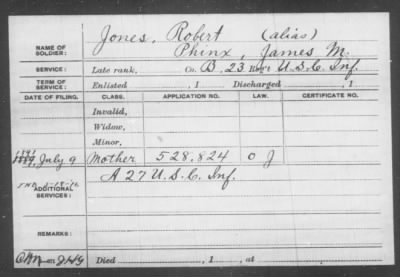 Jones, Robert (alias)
NAME OF SOLDIER: Phinx, James M.
SERVICE: Late rank, Co. B, 23 Reg't U.S.C. Inf.
TERM OF SERVICE: Enlisted , 1 Discharged , 1
DATE OF FILING. CLASS. APPLICATION NO. LAW. CERTIFICATE NO.
Invalid,
Widow,
Minor,
1891 July 9 Mother 528,824 O J
ADDITIONAL SERVICES: A 27 U.S.C. Inf.
REMARKS:
Died , 1 , at